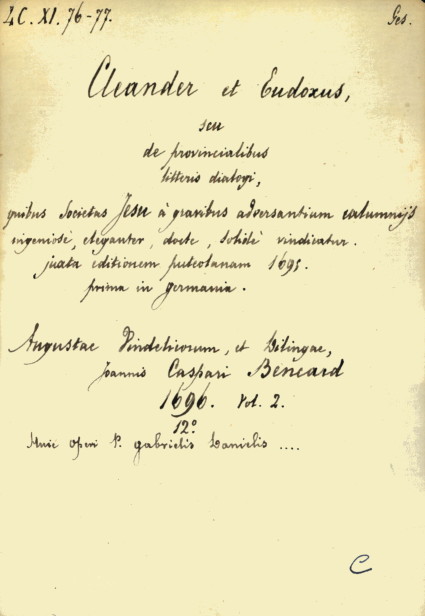 LC. XI. 76-77. Ges.
Cleander et Eudoxus,
seu
de provincialibus
litteris dialogi,
quibus Societas Jesu à gravibus adversantium calumnijs
ingeniosè, eleganter, docte, solidè vindicatur.
juxta editionem puteolanam 1695.
prima in germania.
Augustae Vindelicorum, et Dilingae,
Joannis Caspari Bencard
1696. Vol. 2.
12º
Huic operi P. gabrielis Danielis ....
C